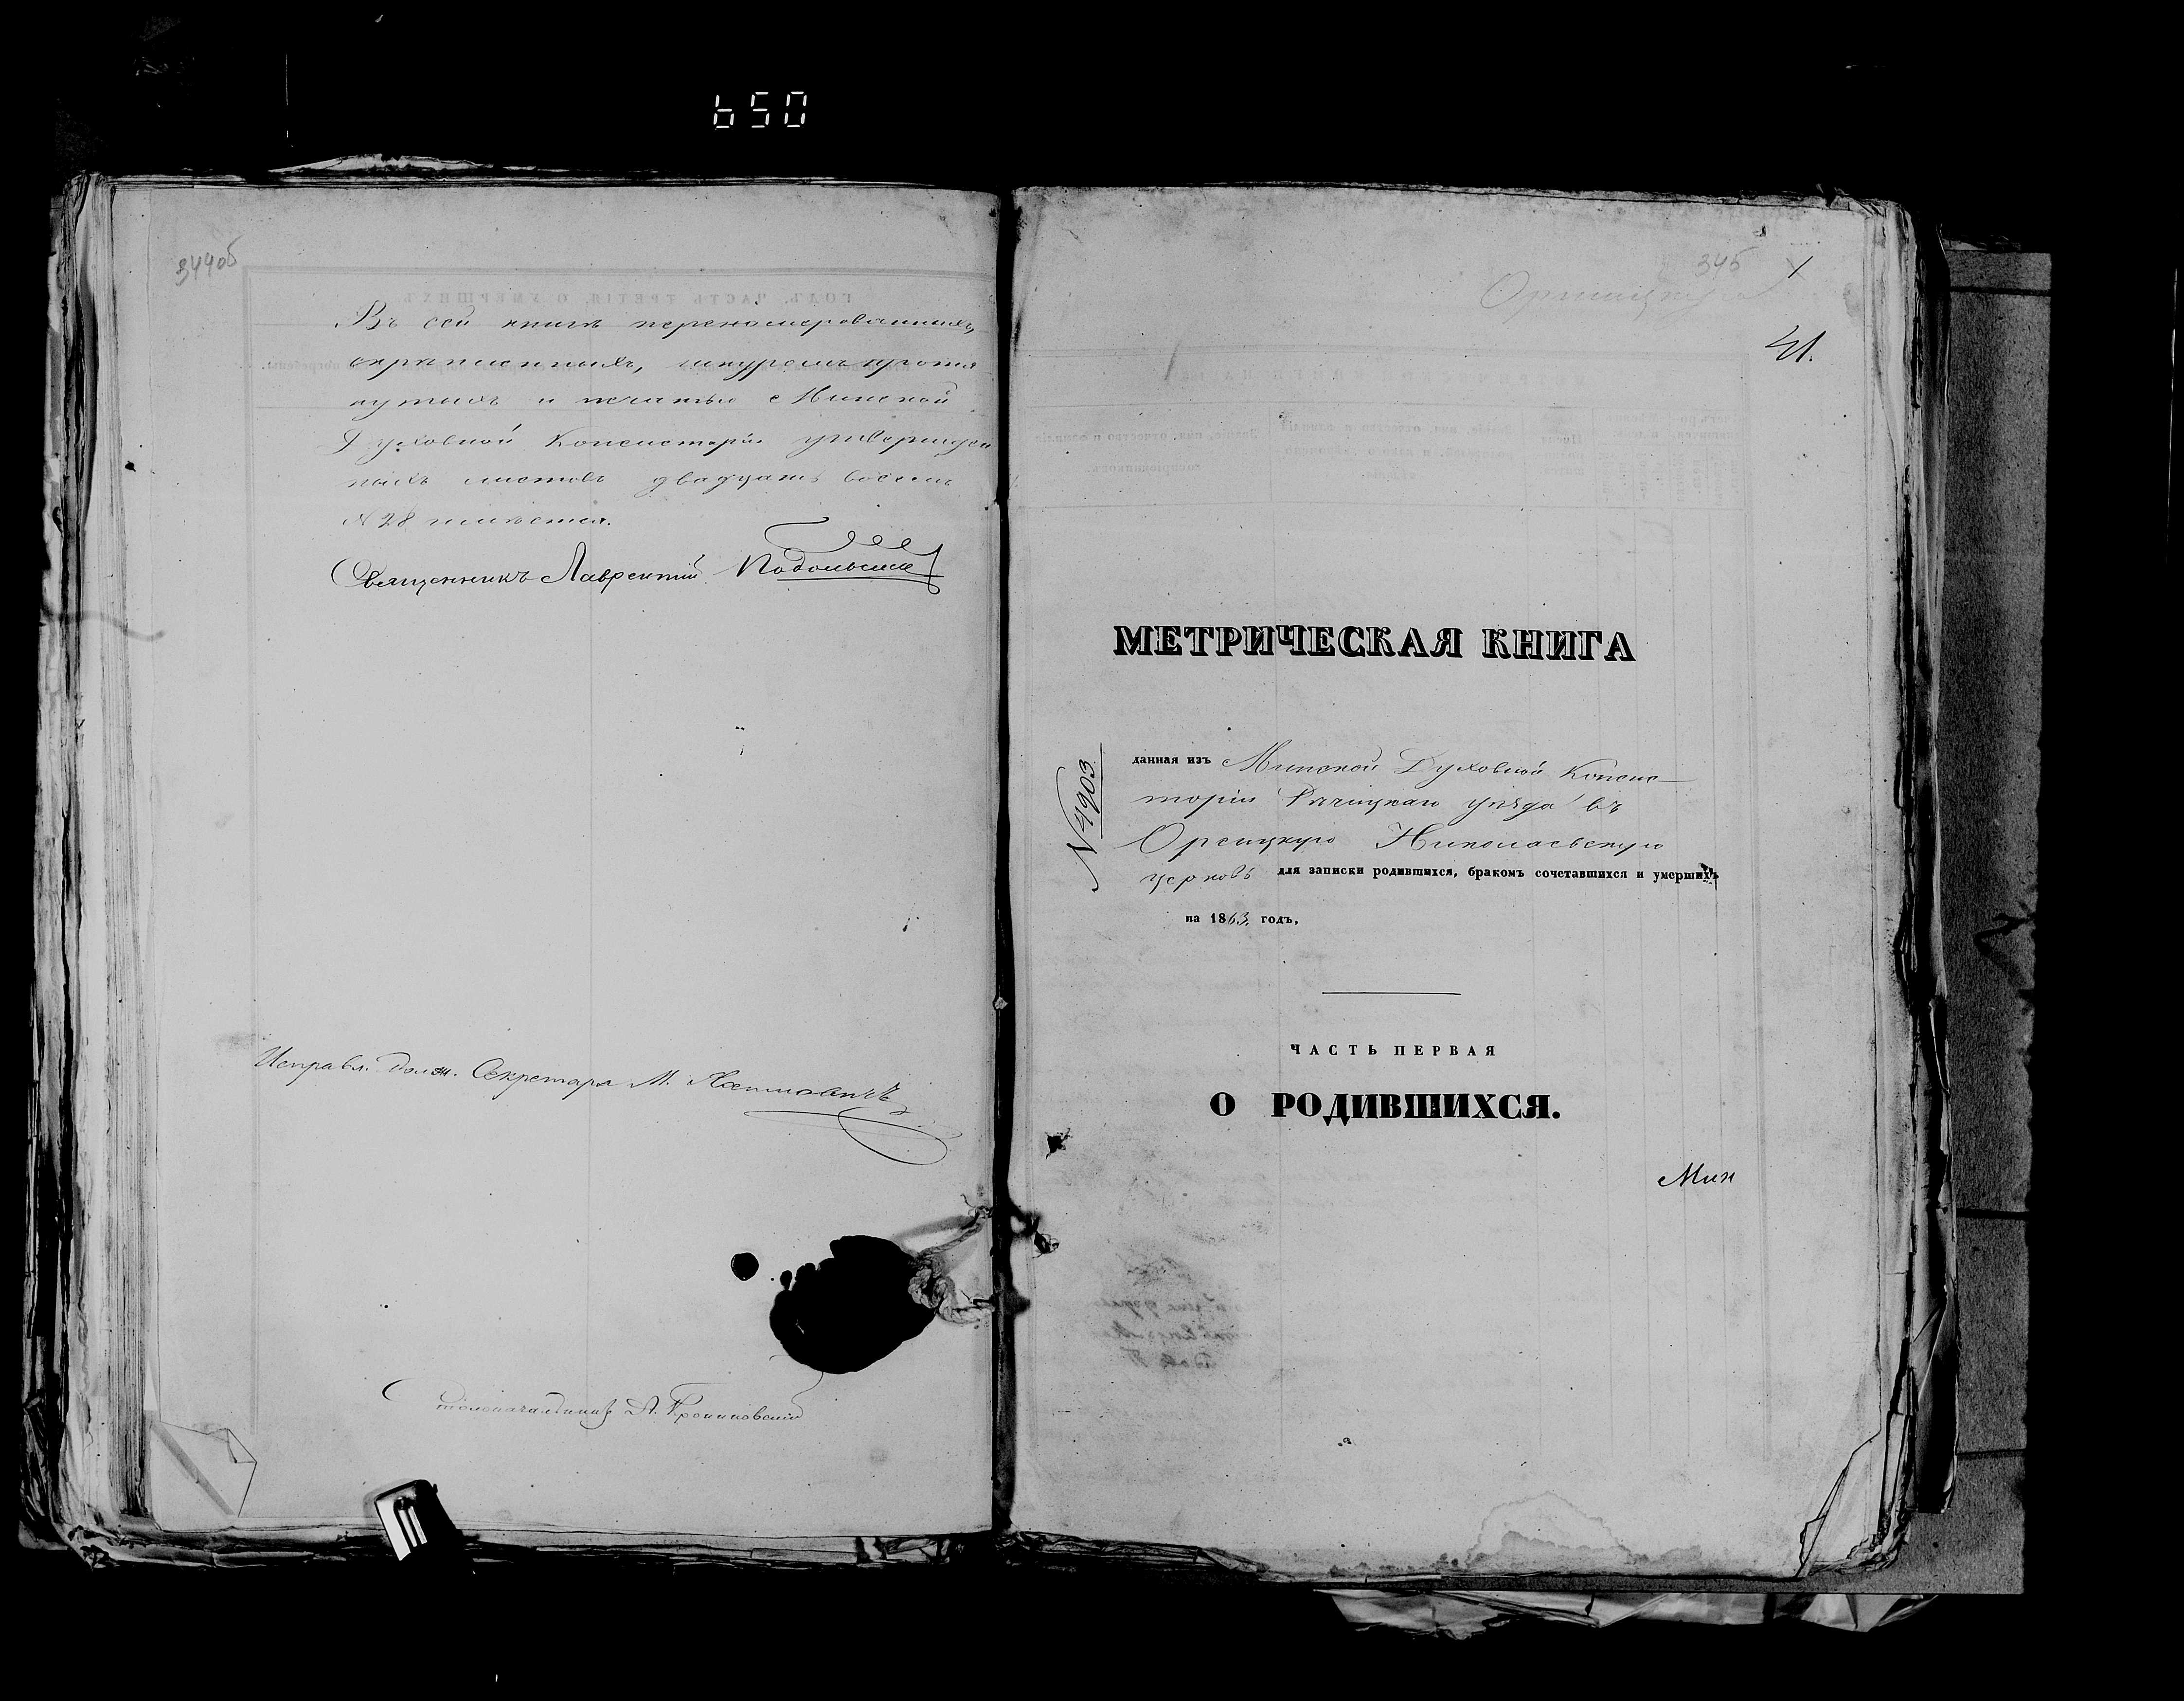 650
344об
Въ сей книгѣ перенумерованныхъ,
скрѣпленныхъ, шнуромъ протя
нутыхъ и печатью Минской
Духовной Консисторіи утвержден
ныхъ листовъ двадцать восемь
№ 28 имѣется.
Священникъ Лаврентій Подольский
Исправл. долж. Секретаря М.
Столоначальникъ А.
345
1
41.
МЕТРИЧЕСКАЯ КНИГА
№ 4903.
данная изъ Минской Духовной Консис-
торіи Рѣчицкаго уѣзда въ
Орсицкую Николаевскую
церковь для записки родившихся, бракомъ сочетавшихся и умершихъ
на 1863 годъ.
ЧАСТЬ ПЕРВАЯ
О РОДИВШИХСЯ.
Мин